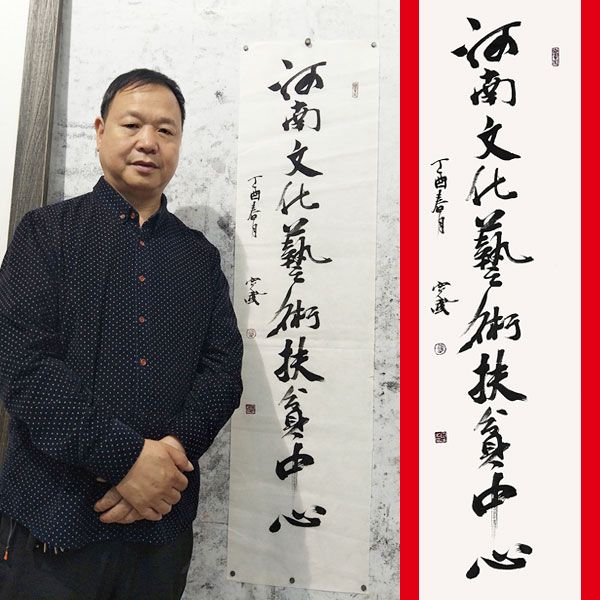 河南文化藝術扶貧中心
丁酉春月
河南文化藝術扶貧中心
丁酉春月